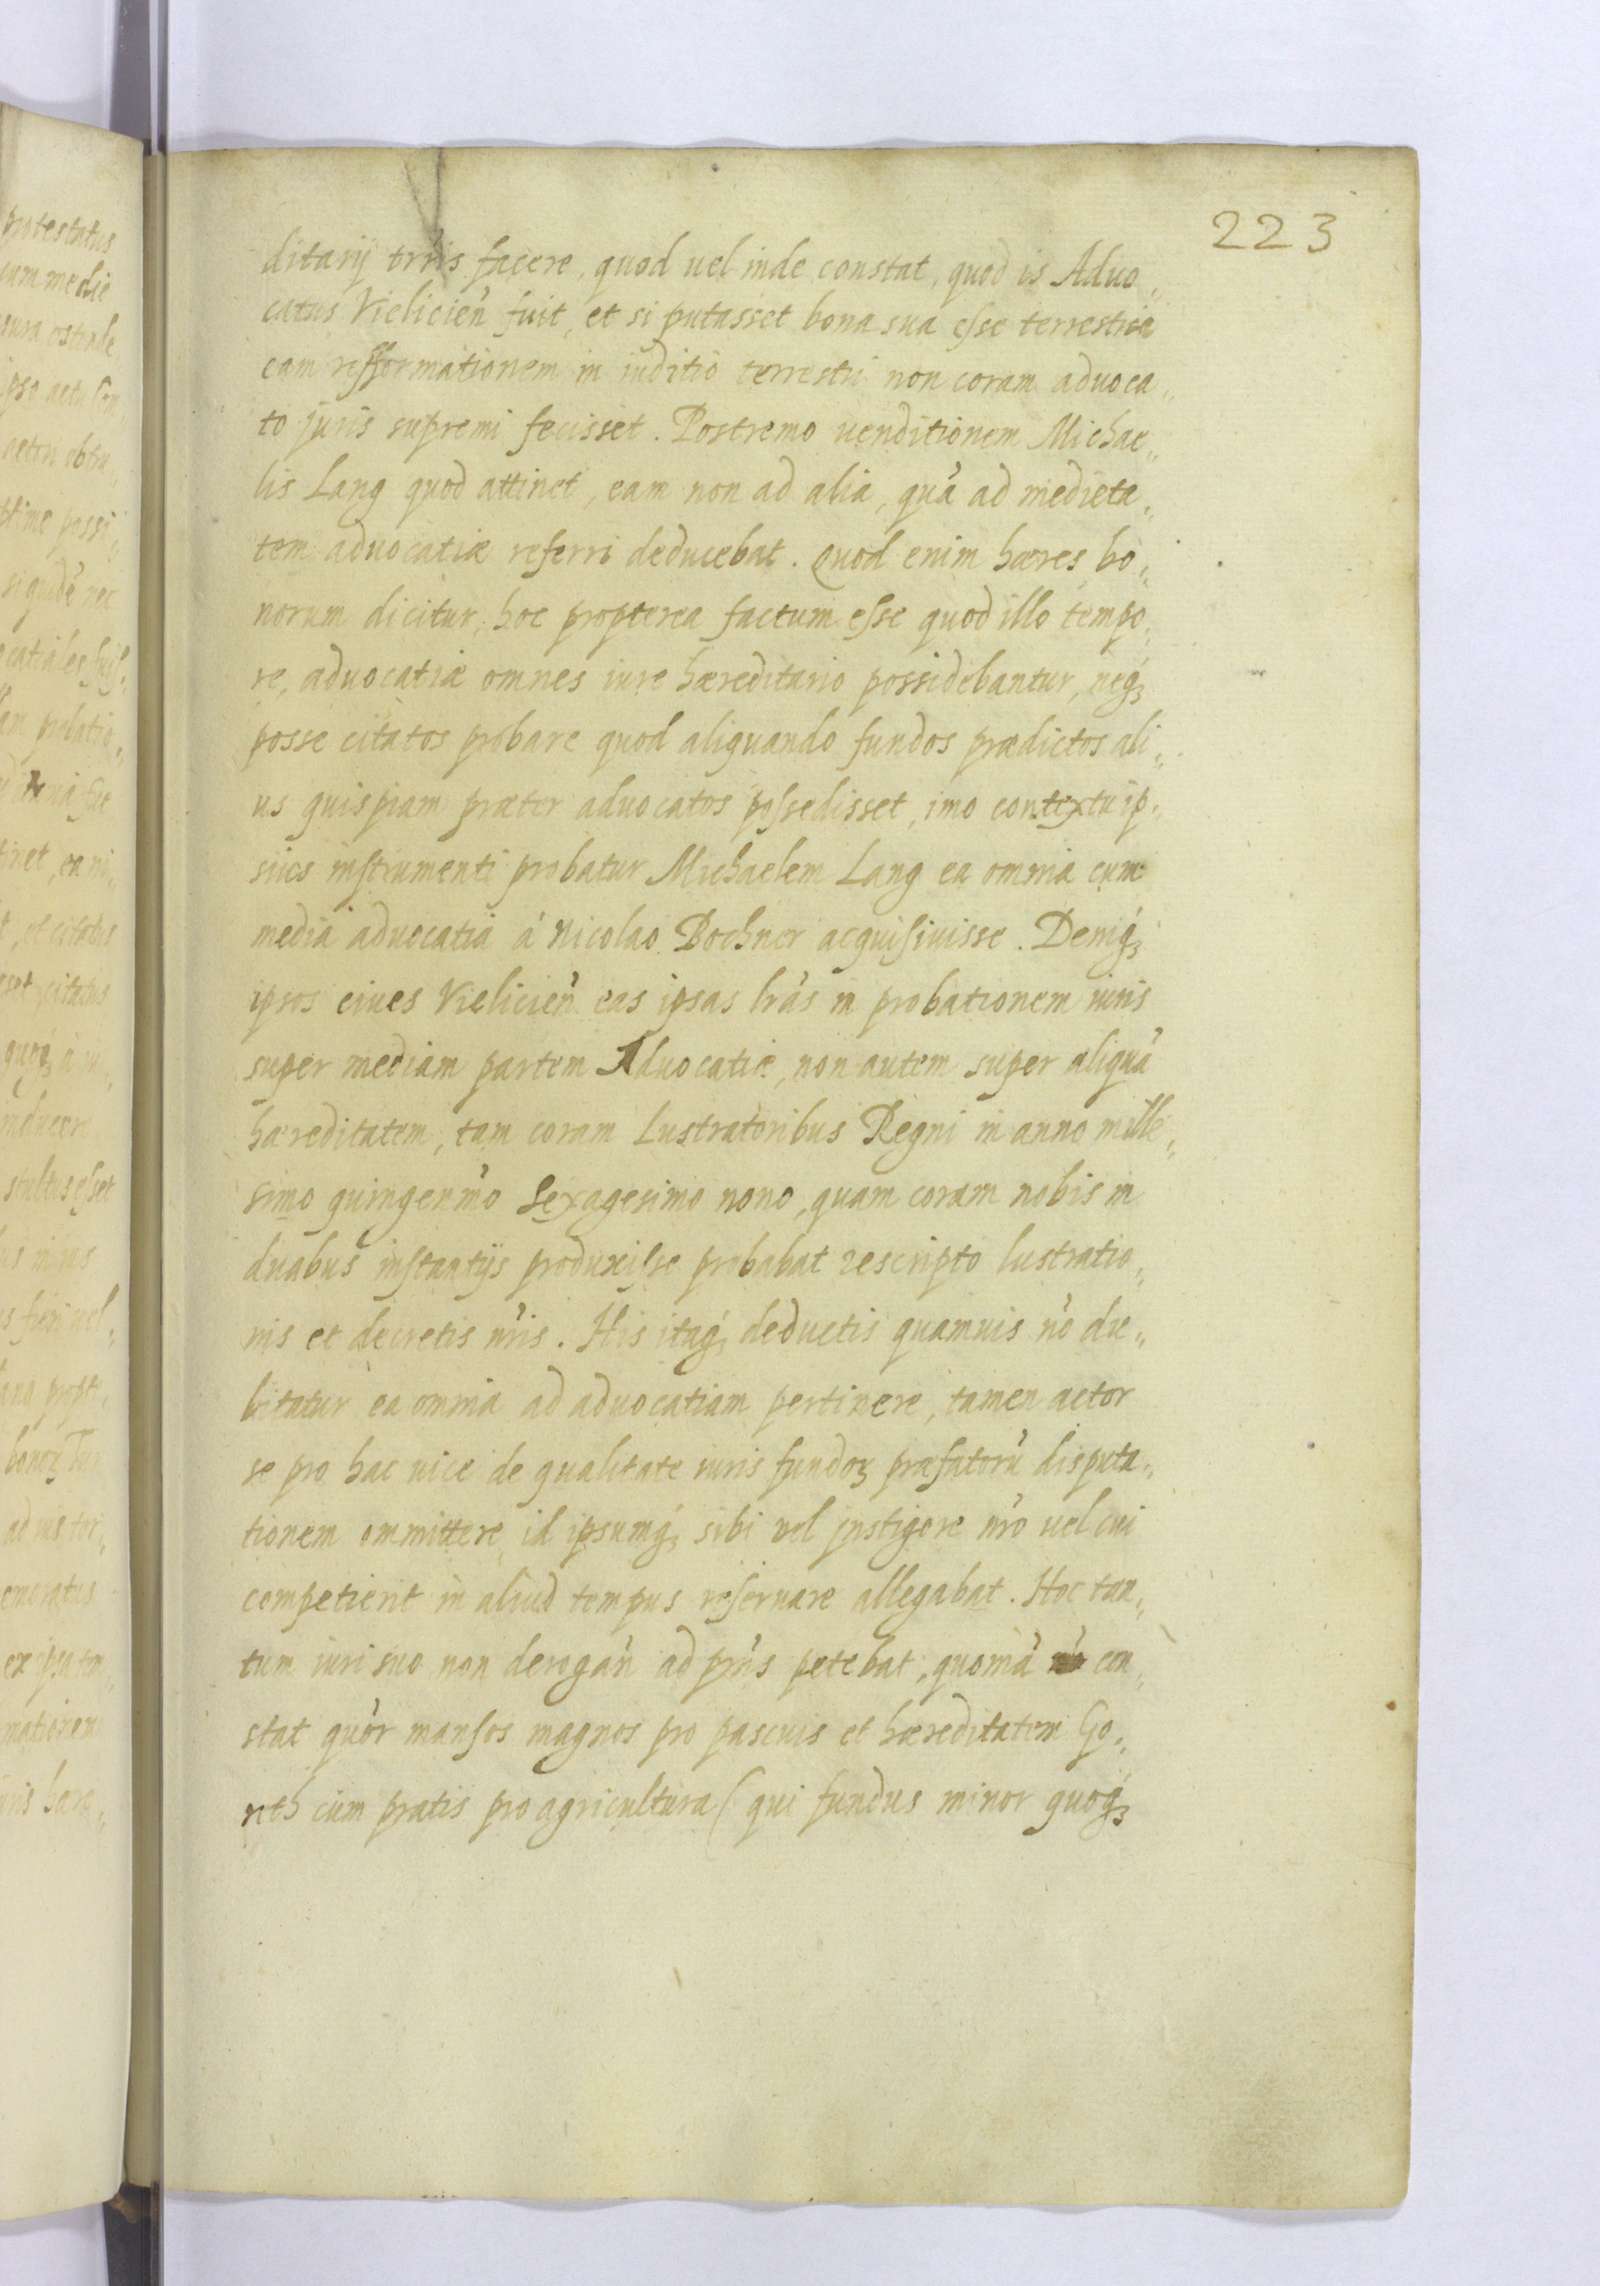 223
ditarij tr̃ris facere, quod uel inde constat, quod is Aduo„
catus Vielicień fuit, et si putasset bona sua esse terrestria
eam refformationem in iuditio terrestri non coram aduoca„
to juris supremi fecisset. Postremo uenditionem Michae„
lis Lang quod attinet, eam non ad alia, quā ad medieta„
tem aduocatiæ referri deducebat. Quod enim hæres bo„
norum dicitur, hoc propterea factum esse quod illo tempo„
re, aduocatiæ omnes iure hæreditario possidebantur, neqꝫ
posse citatos probare quod aliquando fundos prædictos ali„
us quispiam præter aduocatos possedisset, imo contextu ip„
sius instrumenti probatur Michaelem Lang ea omnia cum
media aduocatia à Nicolao Bochner acquisiuisse. Deniqꝫ
ipsos ciues Vielicień eas ipsas lr̃as in probationem iuris
super mediam partem Aduocatiæ, non autem super aliquā
hæreditatem, tam coram Lustratoribus Regni in anno mille„
simo quingenm̃o sexagesimo nono, quam coram nobis in
duabus instantijs produxisse probabat rescripto lustratio„
nis et decretis nr̃is. His itaqꝫ deductis quamuis nō du„
bitatur ea omnia ad aduocatiam pertinere, tamen actor
se pro hac uice de qualitate iuris fundoꝝ præfatorū disputa„
tionem ommittere, id ipsumqꝫ sibi vel jnstigore nr̃o uel cui
competierit in aliud tempus reseruare allegabat. Hoc tan„
tum iuri suo non derogań ad pn̄s petebat, quoniā con„
stat quõr mansos magnos pro pascuis et hæreditatem Go„
reth cum pratis pro agricultura (qui fundus minor quoqꝫ